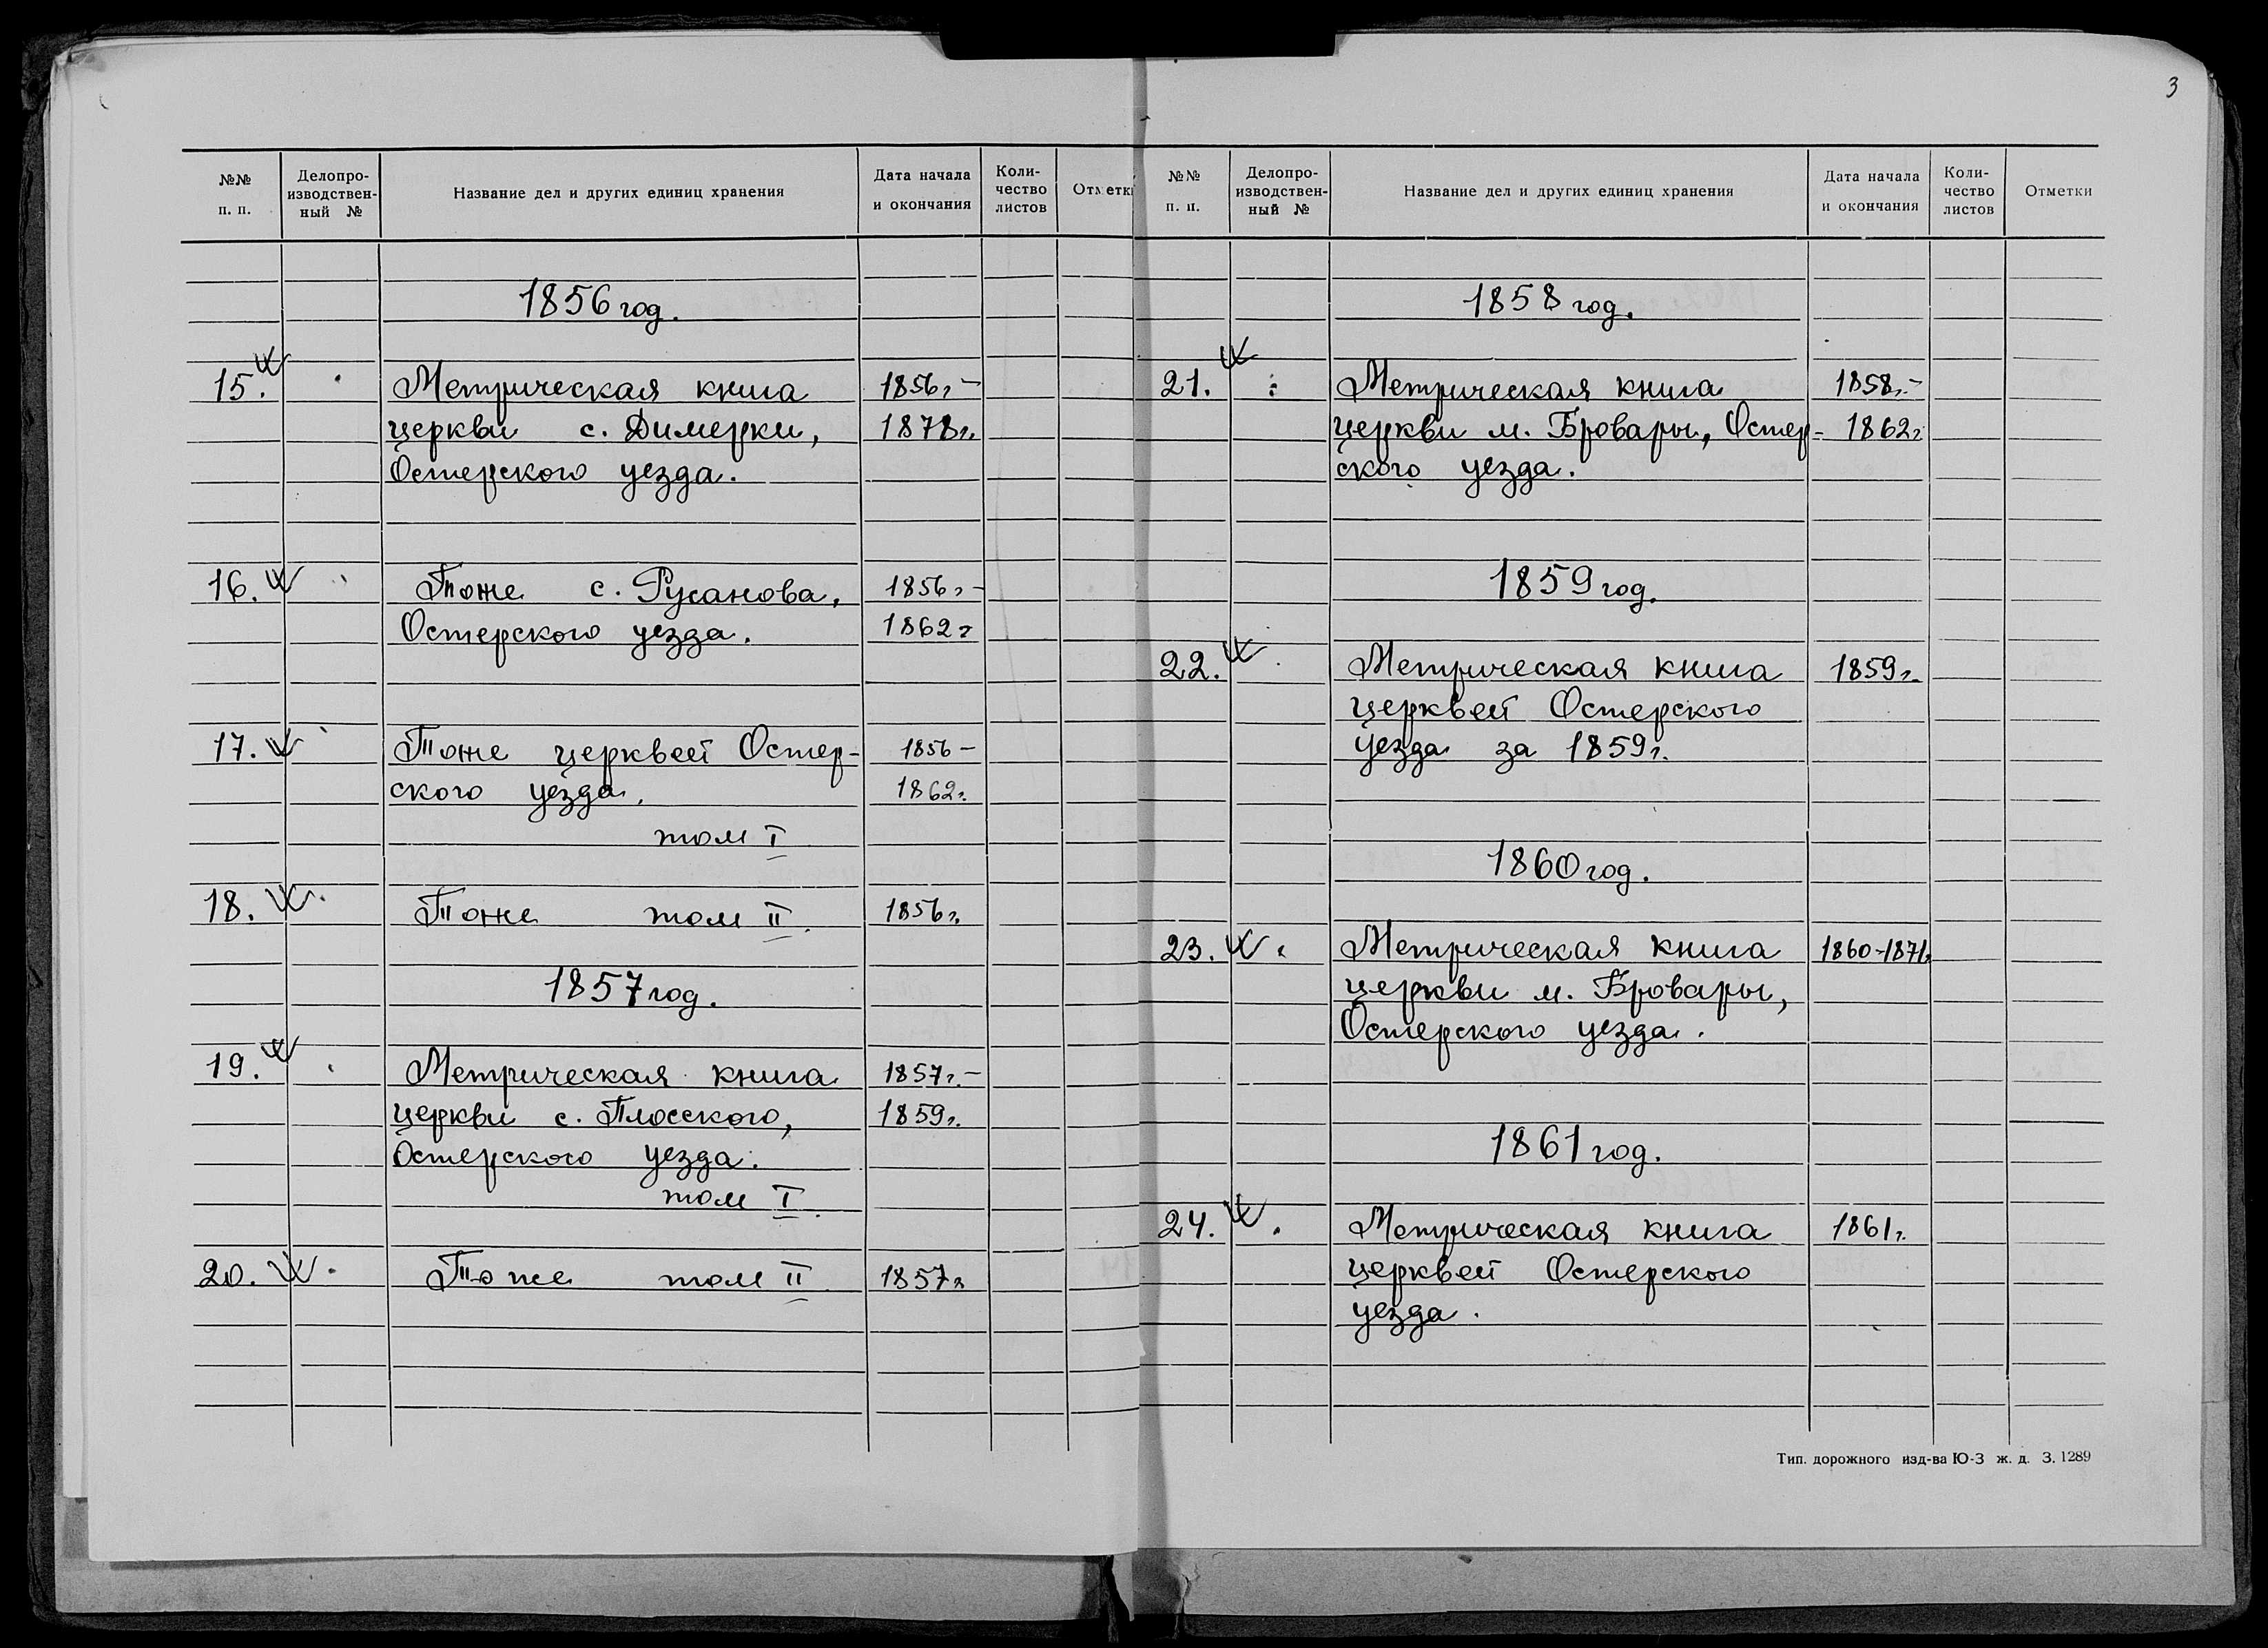 3
№№ п. п.
Делопро-
изводствен-
ный №
Название дел и других единиц хранения
Дата начала
и окончания
Коли-
чество
листов
Отметк
1856 год.
15. Метрическая книга 1856г. –
церкви с. Димерки, 1878г.
Остерского уезда.
16. Тоже с. Русанова, 1856г –
Остерского уезда. 1862г
17. Тоже церквей Остер- 1856 –
ского уезда. 1862г.
том I
18. Тоже том II. 1856г.
1857 год.
19. Метрическая книга 1857г. –
церкви с. Плосского, 1859г.
Остерского уезда.
том I.
20. Тоже том II 1857г
№№ п. п.
Делопро-
изводствен-
ный №
Название дел и других единиц хранения
Дата начала
и окончания
Коли-
чество
листов
Отметки
1858 год.
21. Метрическая книга 1858г. –
церкви м. Бровары, Остер- 1862г
ского уезда.
1859 год.
22. Метрическая книга 1859г.
церквей Остерского
уезда за 1859г.
1860 год.
23. Метрическая книга 1860-1871г
церкви м. Бровары,
Остерского уезда.
1861 год.
24. Метрическая книга 1861г.
церквей Остерского
уезда.
Тип. дорожного изд-ва Ю-З ж. д. З. 1289